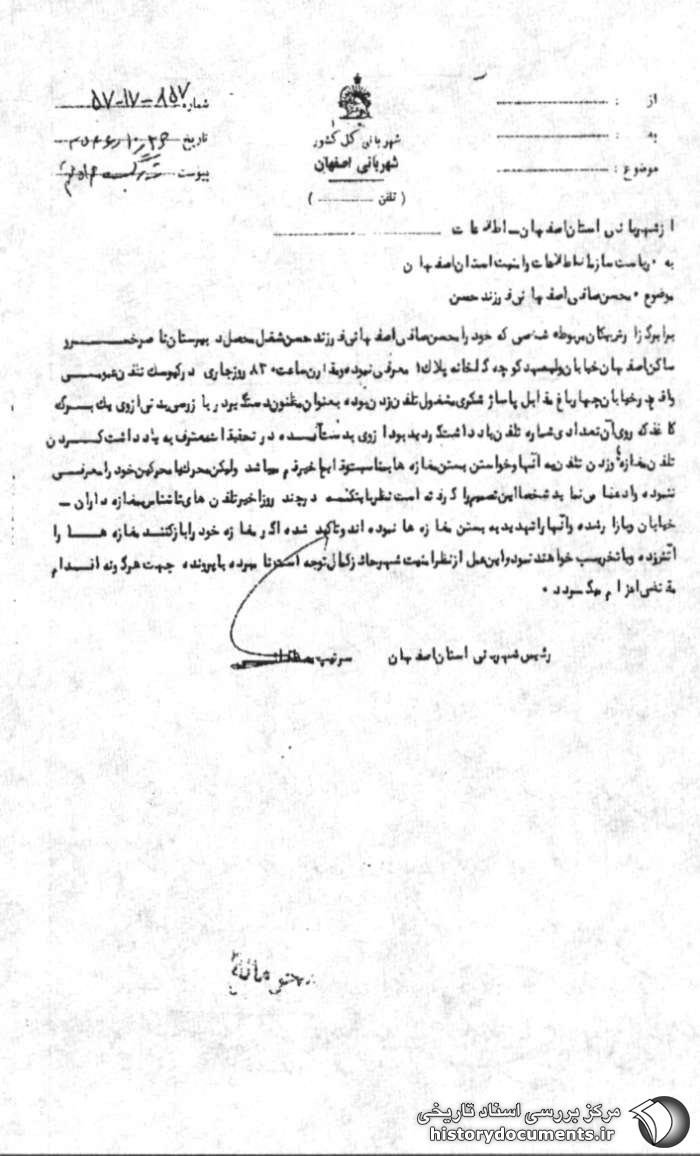 از :
به :
موضوع :
شهربانی کل کشور
شهربانی اصفهان
( تلفن )
شماره ۸۵۷-۱۷-۵۷
تاریخ
پیوست
از شهربانی استان اصفهان ـ اطلاعات
به ۰ ریاست سازمان اطلاعات و امنیت استان اصفهان
موضوع ۰ محسن صافی اصفهانی فرزند حسن
برابر گزارش یگان مربوطه شخصی که خود را محسن صافی اصفهانی فرزند حسن شغل محصل دبیرستان ناصر خسرو
ساکن اصفهان خیابان ولیعهد کوچه گلخانه پلاک ۱ معرفی نموده و مقارن ساعت ۸۳۰ روز جاری در کیوسک تلفن عمومی
واقع در خیابان چهارباغ مقابل پاساژ شکری مشغول تلفن زدن بوده بعنوان مظنون دستگیر در بازرسی بدنی از وی یک برگ
کاغذ که روی آن تعدادی شماره تلفن یادداشت گردیده بود از وی بدست آمده در تحقیقات معترف به یادداشت کردن
تلفن مغازه و زدن تلفن به آنها و خواستن بستن مغازه ها بمناسبت وقایع اخیر قم میباشد ولیکن محرک یا محرکین خود را معرفی
ننموده و ادعا می نماید شخصا این تصمیم را گرفته است نظر باینکه در چند روز اخیر تلفن های ناشناس مغازه داران ـ
خیابان و بازار شده و آنها را تهدید به بستن مغازه ها نموده اند و تاکید شده اگر مغازه خود را باز کنند مغازه ها را
آتش زده و یا تخریب خواهند نمود و این عمل از نظر امنیت شهر حائز کمال توجه است نامبرده با پرونده جهت هرگونه اقدام
مقتضی اعزام میگردد ۰
رئیس شهربانی استان اصفهان سرتیپ
مرکز بررسی اسناد تاریخی
historydocuments.ir